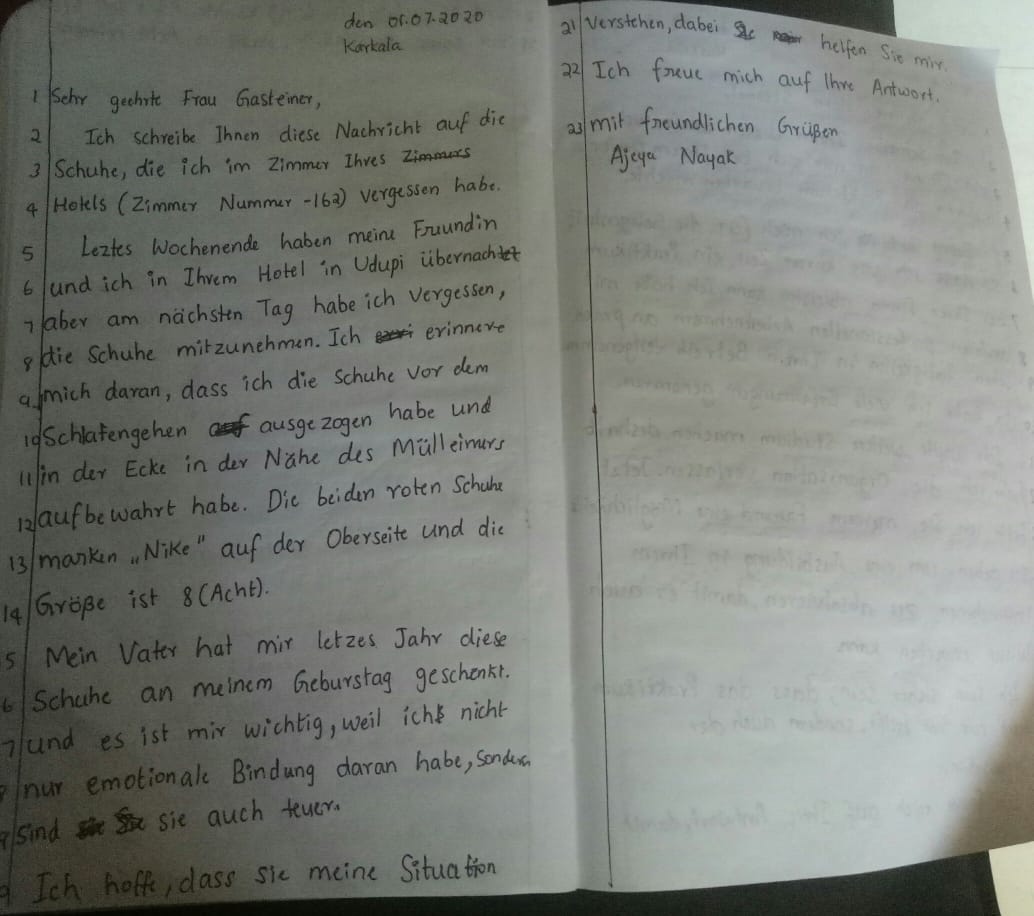 den 01.07.2020
Karkala
1 Sehr geehrte Frau Gasteiner,
2 Ich schreibe Ihnen diese Nachricht auf die
3 Schuhe, die ich im Zimmer Ihres Zimmers
4 Hotels (Zimmer Nummer -162) vergessen habe.
5 Leztes Wochenende haben meine Freundin
6 und ich in Ihrem Hotel in Udupi übernachtet
7 aber am nächsten Tag habe ich vergessen,
8 die Schuhe mitzunehmen. Ich erinnere
9 mich daran, dass ich die Schuhe vor dem
10 Schlafengehen auf ausgezogen habe und
11 in der Ecke in der Nähe des Mülleimers
12 aufbewahrt habe. Die beiden roten Schuhe
13 marken „Nike" auf der Oberseite und die
14 Größe ist 8 (Acht).
5 Mein Vater hat mir letzes Jahr diese
6 Schuhe an meinem Geburstag geschenkt.
7 und es ist mir wichtig, weil ich nicht
8 nur emotionale Bindung daran habe, sondern
9 sind sie Sie sie auch teuer.
Ich hoffe, dass sie meine Situation
21 Verstehen, dabei helfen Sie mir.
22 Ich freue mich auf Ihre Antwort.
23 mit freundlichen Grüßen
Ajeya Nayak